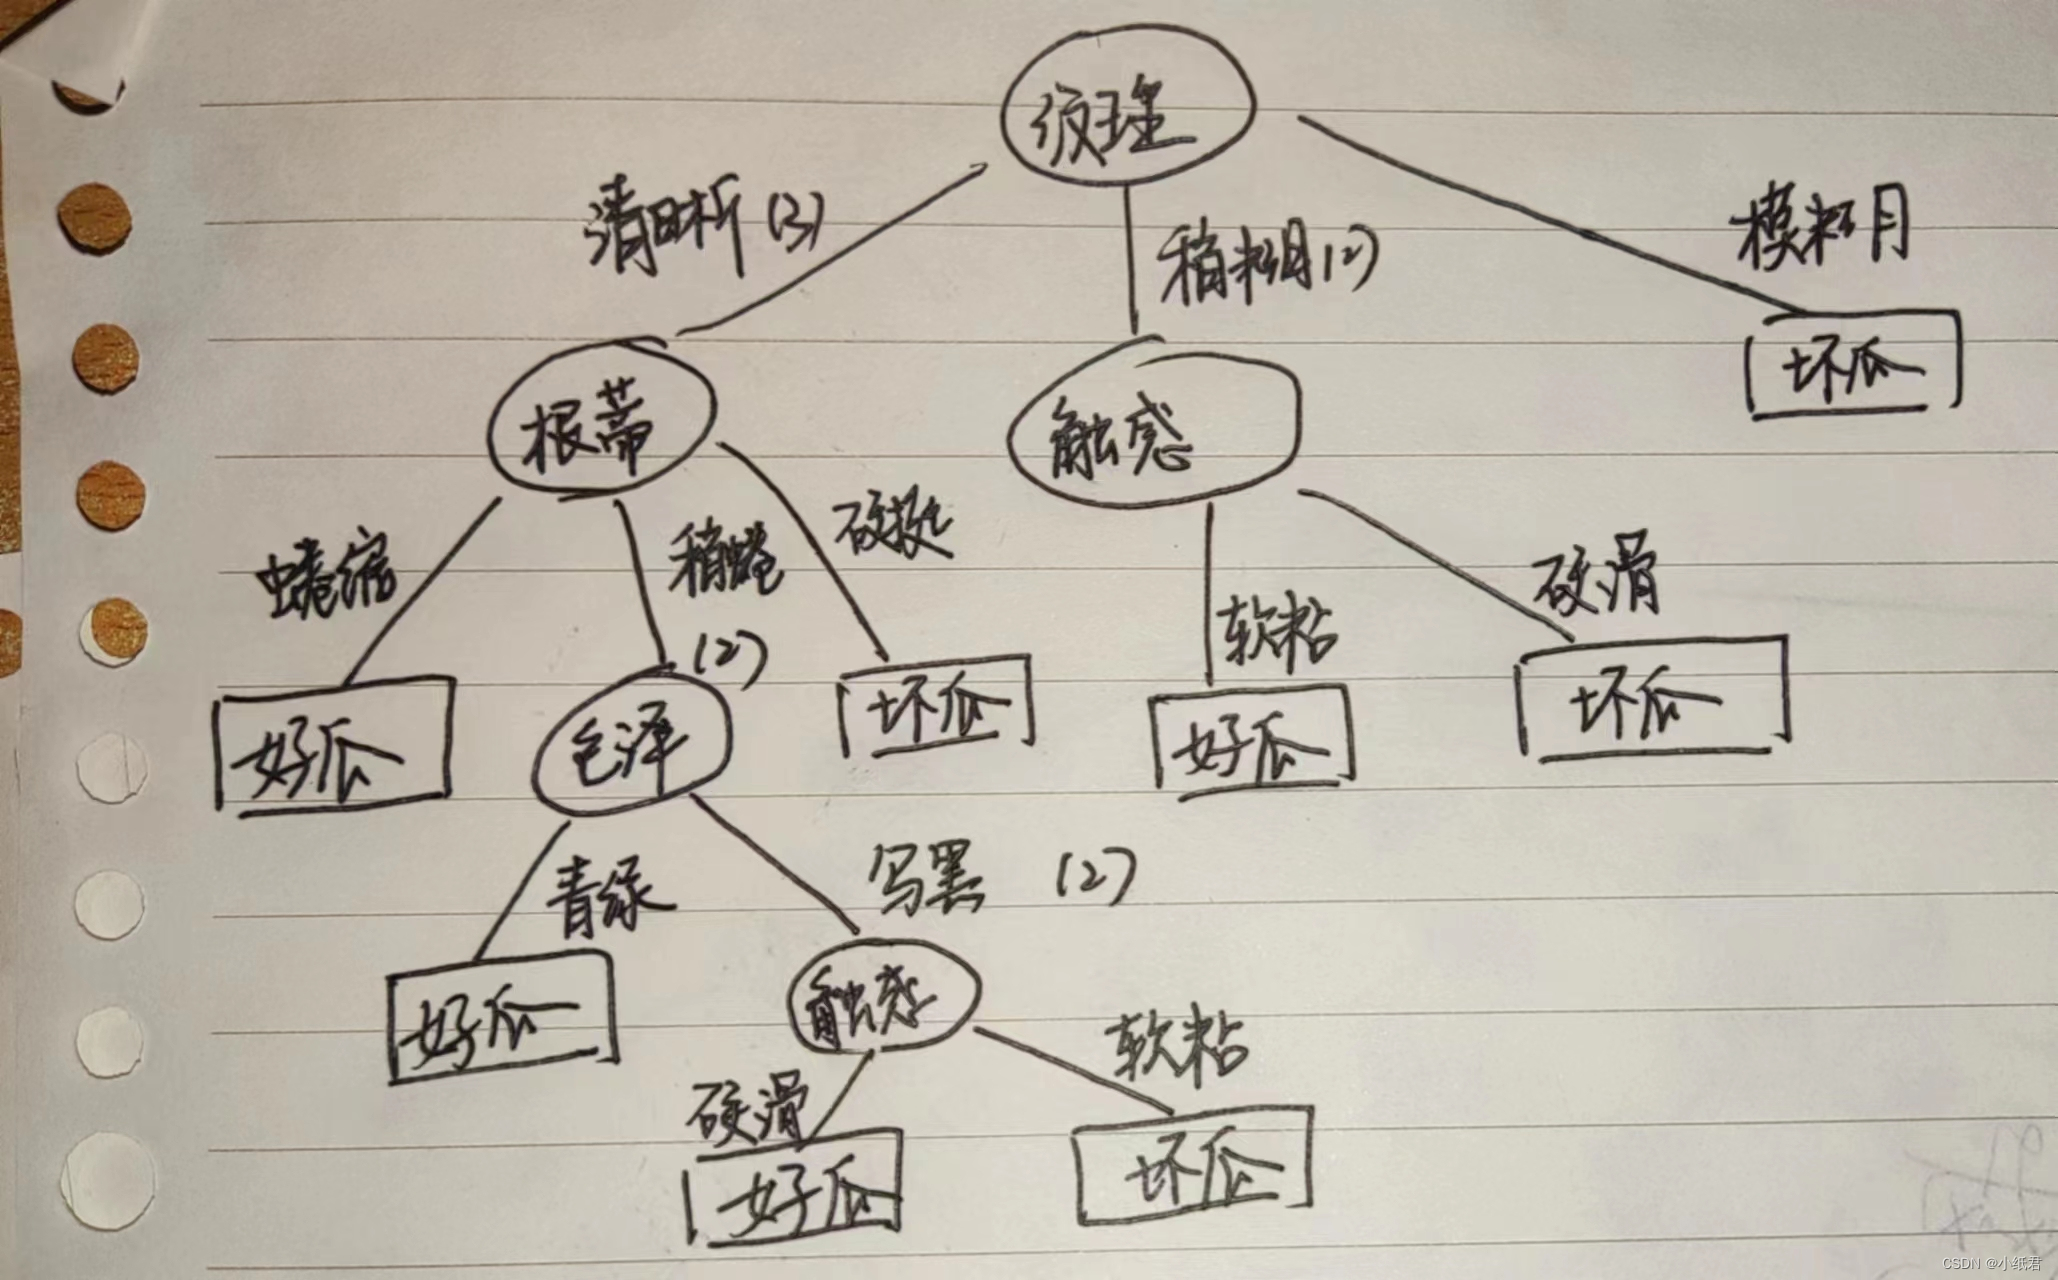 纹理
清晰(3)
稍糊(2)
模糊
根蒂
触感
坏瓜
蜷缩
稍蜷
(2)
硬挺
软粘
硬滑
好瓜
色泽
坏瓜
好瓜
坏瓜
青绿
乌黑 (2)
好瓜
触感
硬滑
软粘
好瓜
坏瓜
CSDN @小纸君